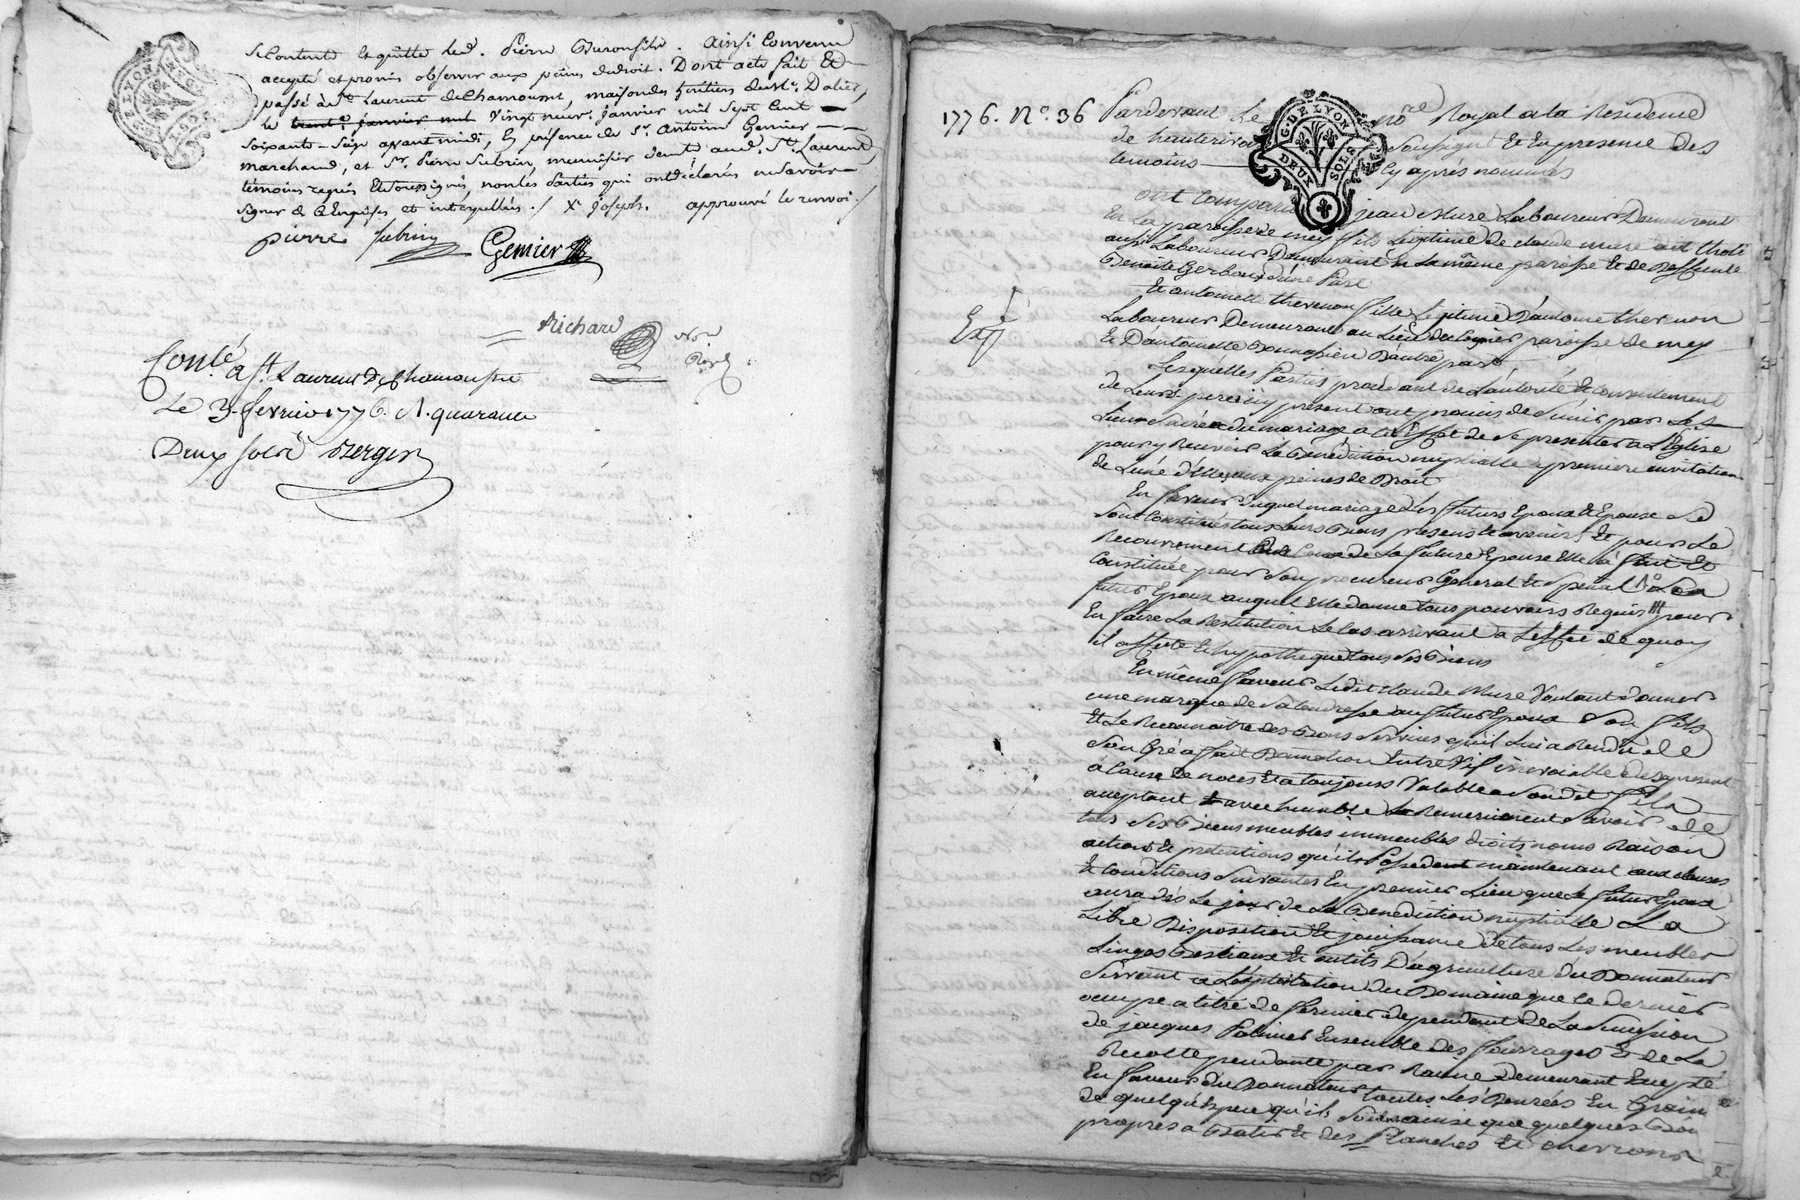 se contente et quitte led. Pierre Guronfils. Ainsi convenu
accepté et promis observer aux peines du droit. Dont acte fait et
passé à St. Laurent de Chamousset, maison des héritiers de Mr. Dalier,
le trente janvier mil vingt neuf janvier mil sept cent
soixante-seize avant midi, en présence de Sr. Antoine Gemier
marchand, et Sr. Pierre Subrin, menuisier demt. aud. St. Laurent
témoins requis et soussignés, non les Parties qui ont déclaré ne savoir
signer de ce Enquises et interpellées ./. X Joseph. approuvé le renvoi ./.
pierre subrin Gemier
Richard
Nore
Royal
Conlé à st. Laurent De Chamousset
Le 3. fevrier 1776. R. quarante
Deux sols Bergier
G. DE LYON
DEUX SOLS
1776. N.º 36
Pardevant Le Nore Royal a la Residence
de hauterivoire soussigné Et En presence des
temoins cy après nommés
ont comparu jean Mure Laboureur Demeurant
En La paroisse de mey fils Legitime de claude mure
aussi Laboureur Demeurant En La même paroisse Et de Deffunte
Benoite Gerboud d'une Part
Et antoinette thevenon fille Legitime D'antoine thevenon
Laboureur Demeurant au Lieu de paroisse de mey
Et D'antoinette D'autre part
Exp
Lesquelles Parties procedant de L'autorité Et Consentement
de Leurs peres cy present ont promis de s'unir par Les
Liens sacrés du mariage a L'effet de se presenter a L'Eglise
pour y Recevoir La Benediction nuptialle a premiere invitation
de L'une d'elles aux peines de Droit
En faveur duquel mariage Les futurs Epoux Et Epouse se
sont Constitués tous Leurs Biens presens Et avenirs Et pour Le
Recouvrement de Ceux de La future Epouse Elle a fait Et
Constitué pour son procureur General Et special Led.
futur Epoux auquel Elle donne tous pouvoirs Requis pour
En faire La Restitution Le Cas arrivant a L'effet de quoy
il affecte Et hypotheque tous ses Biens
En même faveur Ledit claude Mure Voulant donner
une marque de sa tendresse au futur Epoux son fils
Et Le Reconnoitre des Bons services qu'il Lui a Rendu de
son Gré a fait Donation Entre Vif irrevocable desapresent
a Cause de noces Et a toujours Valable a sondit fils
acceptant avec humble Remerciement savoir de
tous ses Biens meubles immeubles droits noms Raison
actions Et pretentions qu'il Possedent maintenant aux clauses
Et Conditions suivantes En premier Lieu que Le futur Epoux
aura dès Le jour de La Benediction nuptialle La
Libre Disposition Et jouissance de tous Les meubles
Linges Bestiaux Et outils D'agriculture du Donnateur
servant a L'exploitation du Domaine que ce dernier
occupe a titre de fermier dependant de La succession
de jacques Poliniet Ensemble des fourrages Et de La
Recolte pendante par Racine Demeurant Excepté
En faveur du Donnateur toutes Les Denrées En Grain
de quelqu'espece qu'ils soient ainsi que quelques Bois
propres a Batir Et des Planches Et chevrons